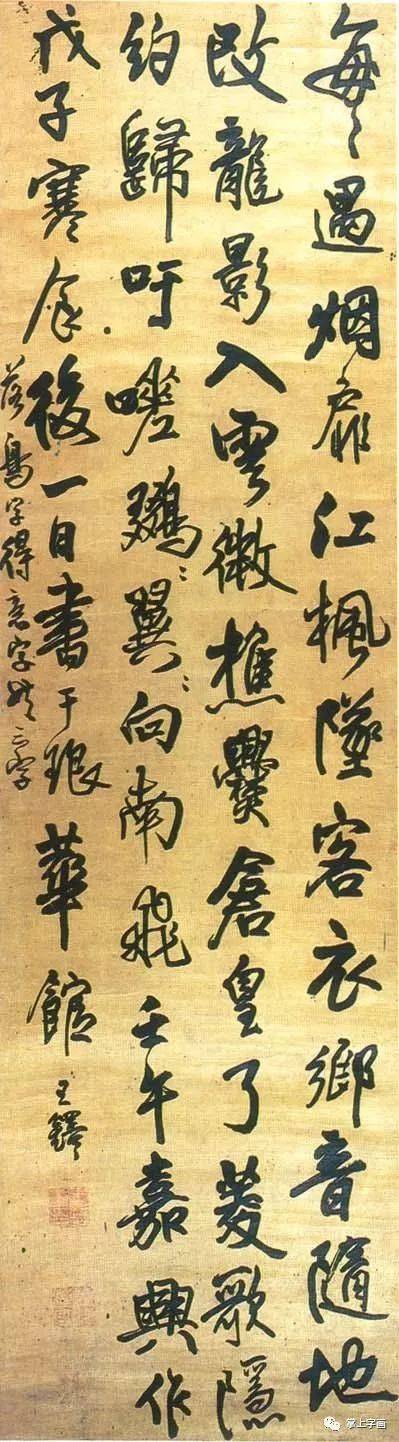 每〻遇烟扉江楓墜客衣鄉音隨地
改龍影入雲微樵爨倉皇了菱歌隱
約歸吁嗟鷄〻翼〻向南飛壬午嘉興作
戊子寒食後一日書于琅華館 王鐸
落鳥字得意字
掌上字画